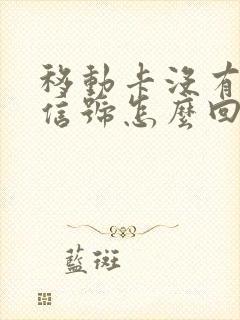 移動卡沒有
信號怎麼回
藍斑